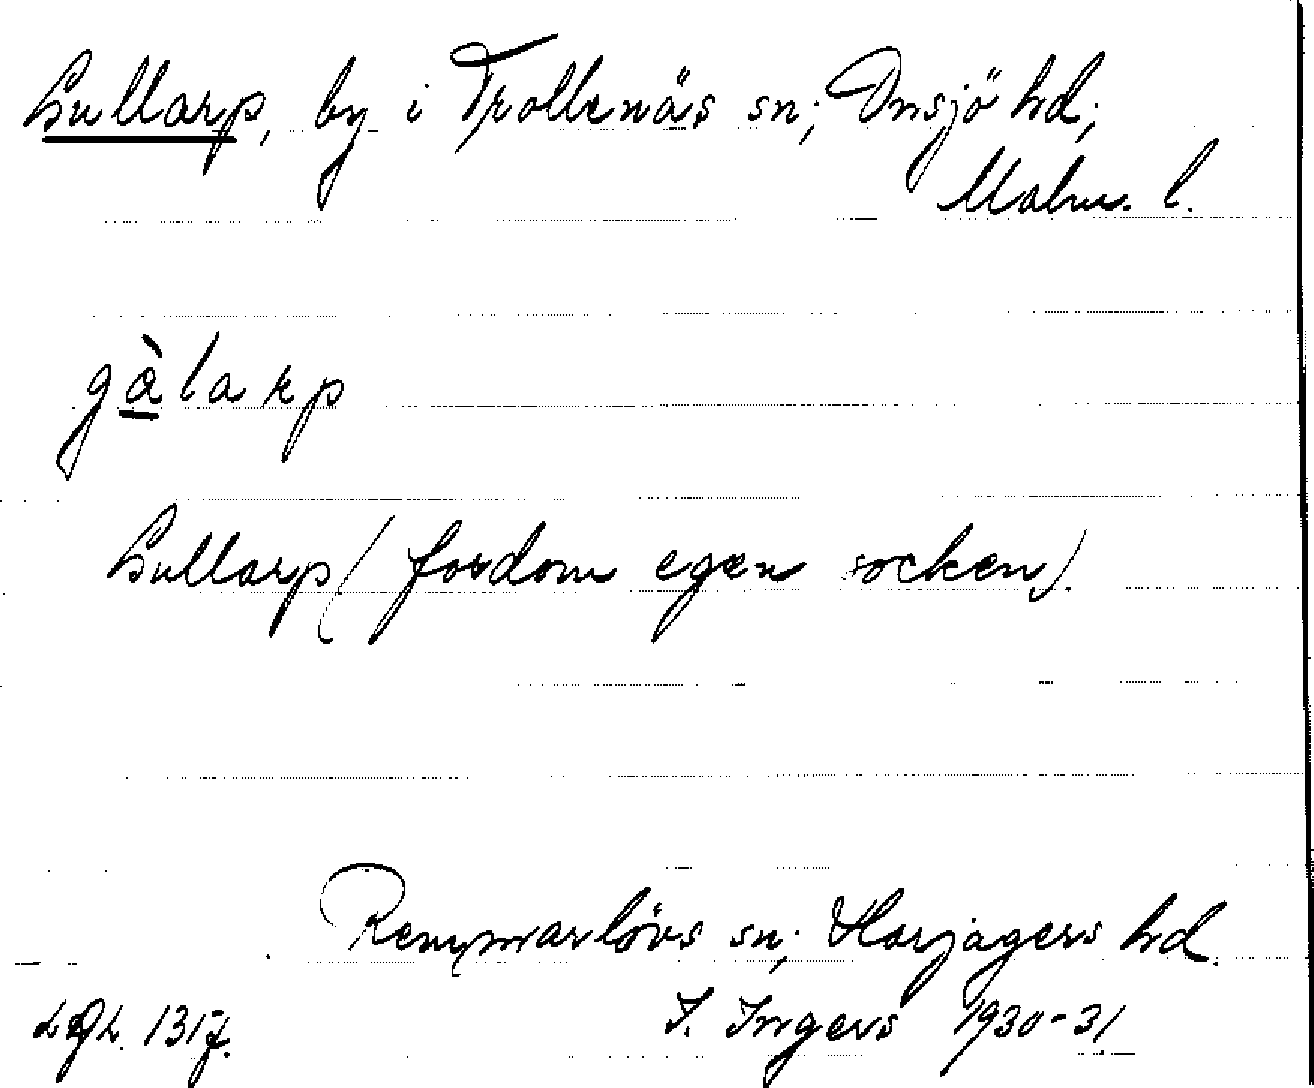 Gullarp, by i Trollenäs sn; Onsjö hd;
Malm. l.
gàlaʀp
Gullarp (fordom egen socken).
Remmarlövs sn; Harjagers hd.
1317. I. Ingers 1930-31